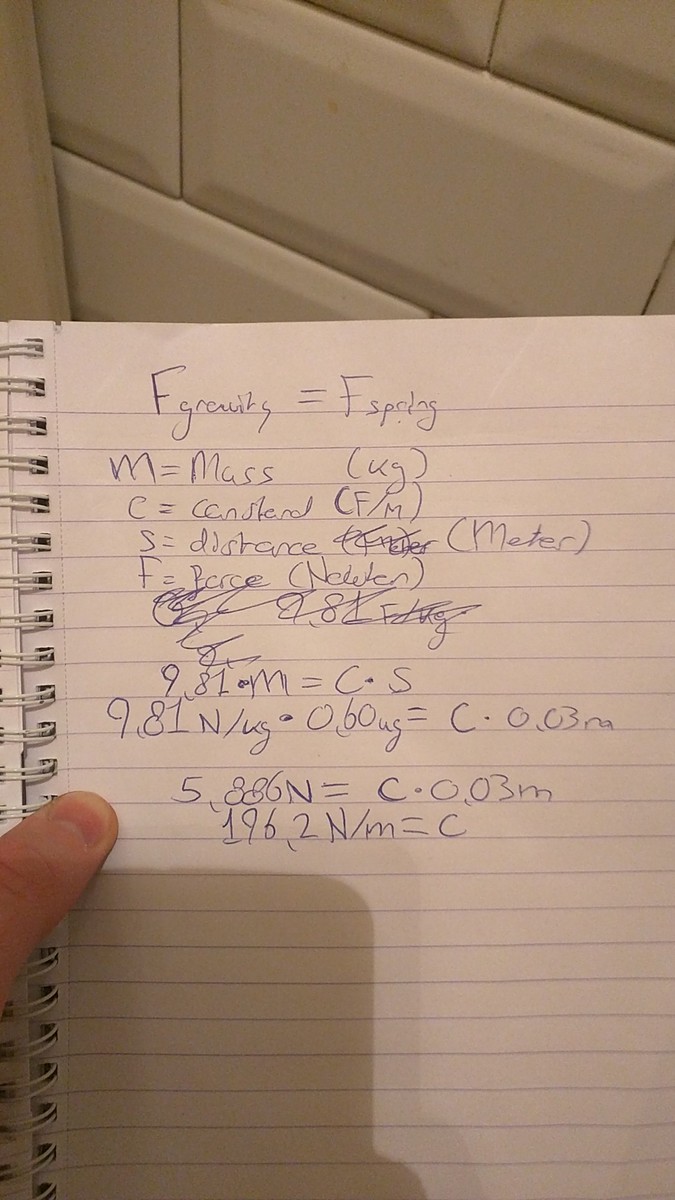 Fgravity = Fspring
M = Mass (kg)
C = constand (F/M)
S = distance (Meter)
F = force (Newton)
9,81 F/kg
9,81 • M = C • S
9,81 N/kg • 0,60 kg = C • 0,03m
5,886N = C • 0,03m
196,2 N/m = C